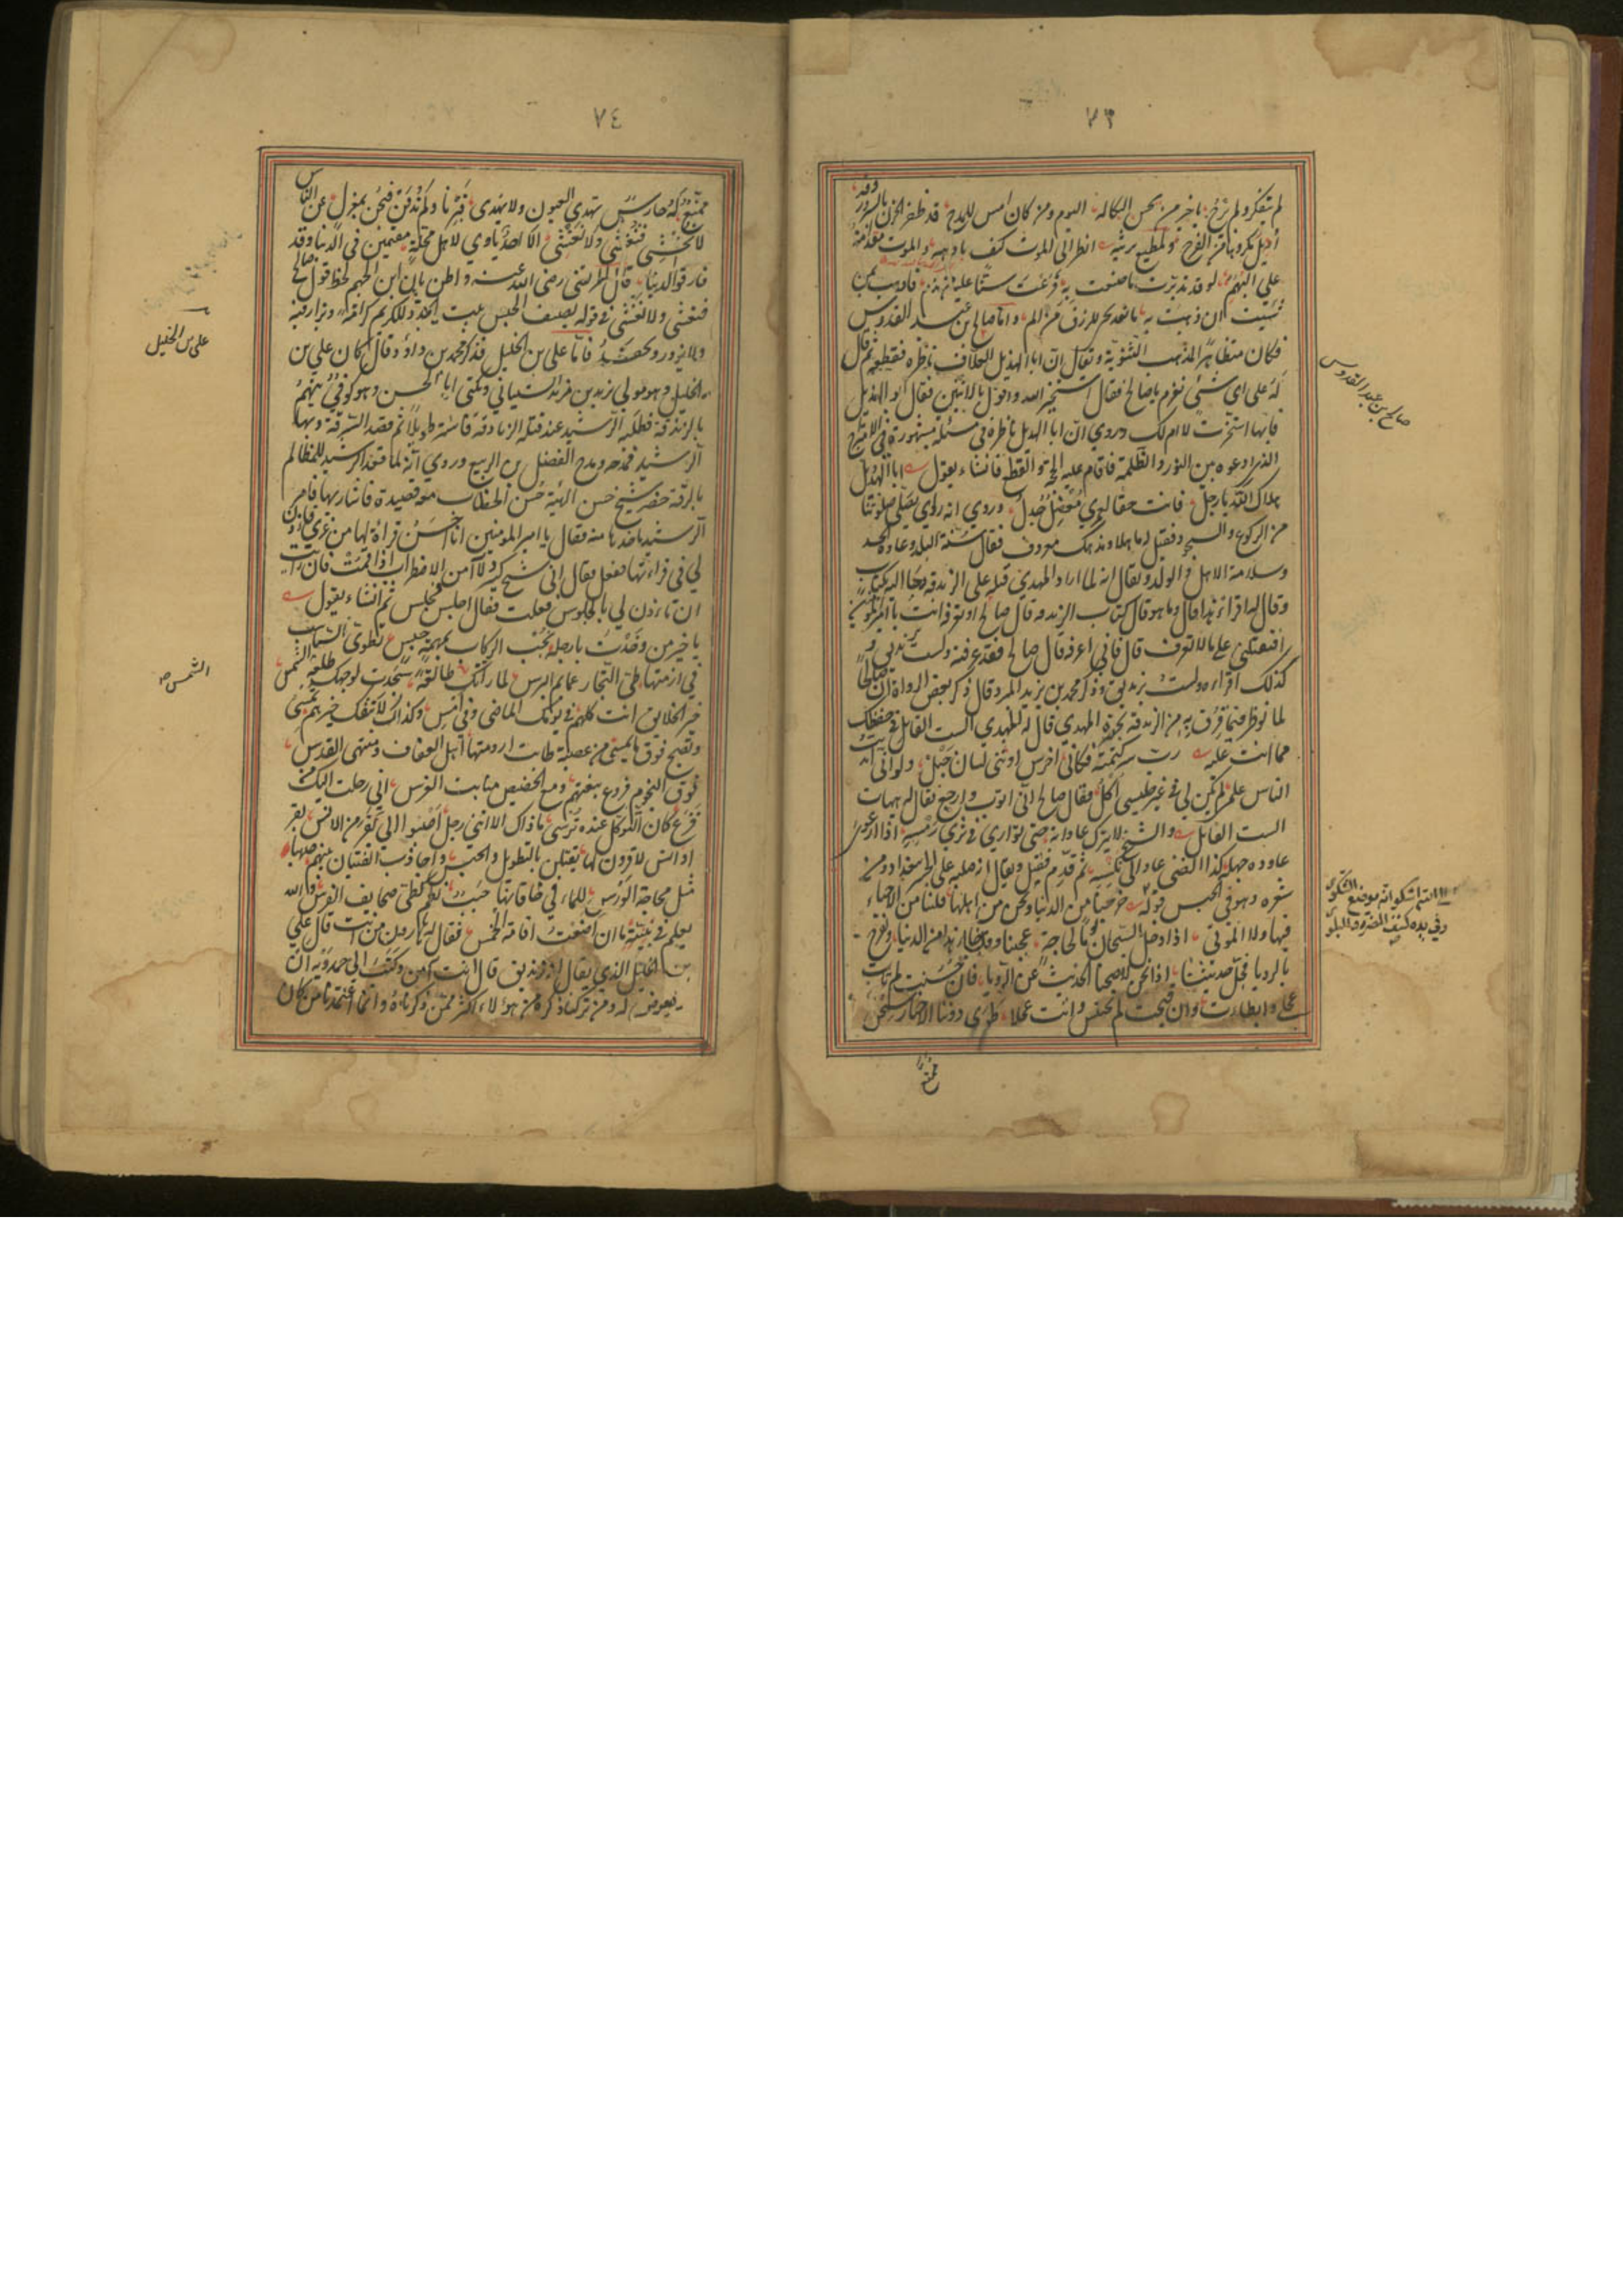 ٧٣
لم تفكر ولم ترح يا خير من يحسن البكا له اليوم ومن كان امس للمدح قد ظفر الحزن بالسرور وقد
اديل مكروهنا من الفرح ولمطيع يرثيه انظر الى الموت كيف بادهه والموت مقدامة
على البهم لو قد تدبرت ما صنعت به قرعت سنا عليه من ندم فاذهب بمن
شئت ان ذهبت به ما بعد يحيى للرزء من الم واما صالح بن عبد القدوس
فكان متظاهرا بمذهب الثنوية ويقال ان ابا الهذيل العلاف ناظره فقطعه ثم قال
له على اي شئ تعزم يا صالح فقال استخير الله واقول بالاثنين فقال ابو الهذيل
فايهما استخرت لا ام لك وروي ان ابا الهذيل ناظره في مسئلة مشهورة في الامتزاج
الذي ادعوه بين النور والظلمة فاقام عليه الحجة فانقطع فانشاء يقول ابا الهذيل
هداك الله يا رجل فانت حقا لعمري معضل جدل وروي انه رؤي يصلي صلوة تامة
من الركوع والسجود فقيل له ما هذا ومذهبك معروف فقال سنة البلد وعادة الجسد
وسلامة الاهل والولد ويقال انه لما اراد المهدي قتله على الزندقة دحا اليه بكتاب
وقال له اقراء هذا قال وما هو قال كتاب الزندقة قال صالح او تعرفه انت يا امير المؤمنين
افتقتلني على ما لا تعرف قال فاني اعرفه قال صالح فقد عرفته ولست بزنديق
كذلك اقراءه ولست بزنديق وذكر محمد بن يزيد المبرد قال ذكر بعض الرواة ان صالحا
لما نوظر فيما قرف به من الزندقة بحضرة المهدي قال له المهدي الست القائل في حفظك
مما انت عليه رب سر كتمته فكاني اخرس او ثنى لساني خبل ولو اني ابديت
الناس علمي لم يكن لي في غير حبسي اكل فقال صالح اني اتوب وارجع فقال له هيهات
الست القائل والشيخ لا يترك عاداته حتى يوارى في ثرى رمسه اذا ارعوى
عاوده جهله كذا الضنى عاد الى نكسه ثم قدم فقتل ويقال انه صلبه على الجسر ببغداد ومن
شعره وهو في الحبس قوله خرجنا من الدنيا ونحن من اهلها فلسنا من الاحياء
فيها ولا الموتى اذا دخل السجان يوما لحاجة عجبنا وقلنا جاء هذا من الدنيا ونفرح
بالرؤيا فجل حديثنا اذا نحن اصبحنا الحديث عن الرؤيا فان حسنت لم تات
عجلى وابطاءت وان قبحت لم تحتبس واتت عجلا طوى دوننا الاخبار سجن
ممنع
صالح بن عبد القدوس
٧٤
ممنع له حارس تهدى العيون ولا يهدى قبرنا ولم ندفن فنحن بمعزل عن الناس
لا نخشى فنغشى ولا نغشى الا احد ياوي لاهل محلة مقيمين في الدنيا وقد
فارقوا الدنيا قال المرتضى رضي الله عنه واظن بان ابن الجهم لحظ قول صالح
فنغشى ولا نغشى في قوله يصف الحبس بيت يجدد للكريم كرامة ويزار فيه
ولا يزور ويحفد فاما علي بن الخليل فذكر محمد بن داود قال كان علي بن
الخليل وهو مولى يزيد بن مزيد الشيباني ويكنى ابا الحسن وهو كوفي يتهم
بالزندقة فطلبه الرشيد عند قتله الزنادقة فاستتر طويلا ثم قصد الرقة وبها
الرشيد فمدحه ومدح الفضل بن الربيع وروي انه لما قعد الرشيد للمظالم
بالرقة حضر شيخ حسن الهيئة حسن الخضاب معه قصيدة فاشار بها فامر
الرشيد باخذها منه فقال يا امير المؤمنين انا احسن قراءة لها من غيري فاذن
لي في قراءتها ففعل فقال اني شيخ كبير ولا آمن الاضطراب اذا قمت فان رايت
ان تاءذن لي بالجلوس فعلت فقال اجلس فجلس ثم انشاء يقول
يا خير من وخدت بارحله نجب الركاب بمهمه جلس تطوى السباسب
في ازمتها طي التجار عمايم البرس لما راتك طالعة سجدت لوجهك طلعة الشمس
خير الخلايق انت كلهم في يومك الماضي وفي امس وكذاك لا تنفك خيرهم تمسي
وتصبح فوق ما تمسي من عصبة طابت ارومتها اهل العفاف ومنتهى القدس
فوق النجوم فروع نبعتهم ومع الحضيض منابت الغرس اني رحلت اليك من
فزع كان التوكل عنده ترسي ما ذاك الا انني رجل اصبوا الى بقر من الانس بقر
اوانس لا قرون لها يقتلن بالتطويل والحبس واجاذب الفتيان بينهم صهباء
مثل مجاجة الورس للماء في حافاتها حبب نظم كطي صحايف الفرس والله
يعلم في بقيته ما ان اضعت اقامة الخمس فقال له هارون من انت قال علي
بن الخليل الذي يقال انه زنديق قال انت آمن وكتب الى حمدويه ان
لا يعرض له ومن تركنا ذكره من هؤلاء اكثر ممن ذكرناه وانما اعتمدنا من كان
علي بن الخليل
الشمس